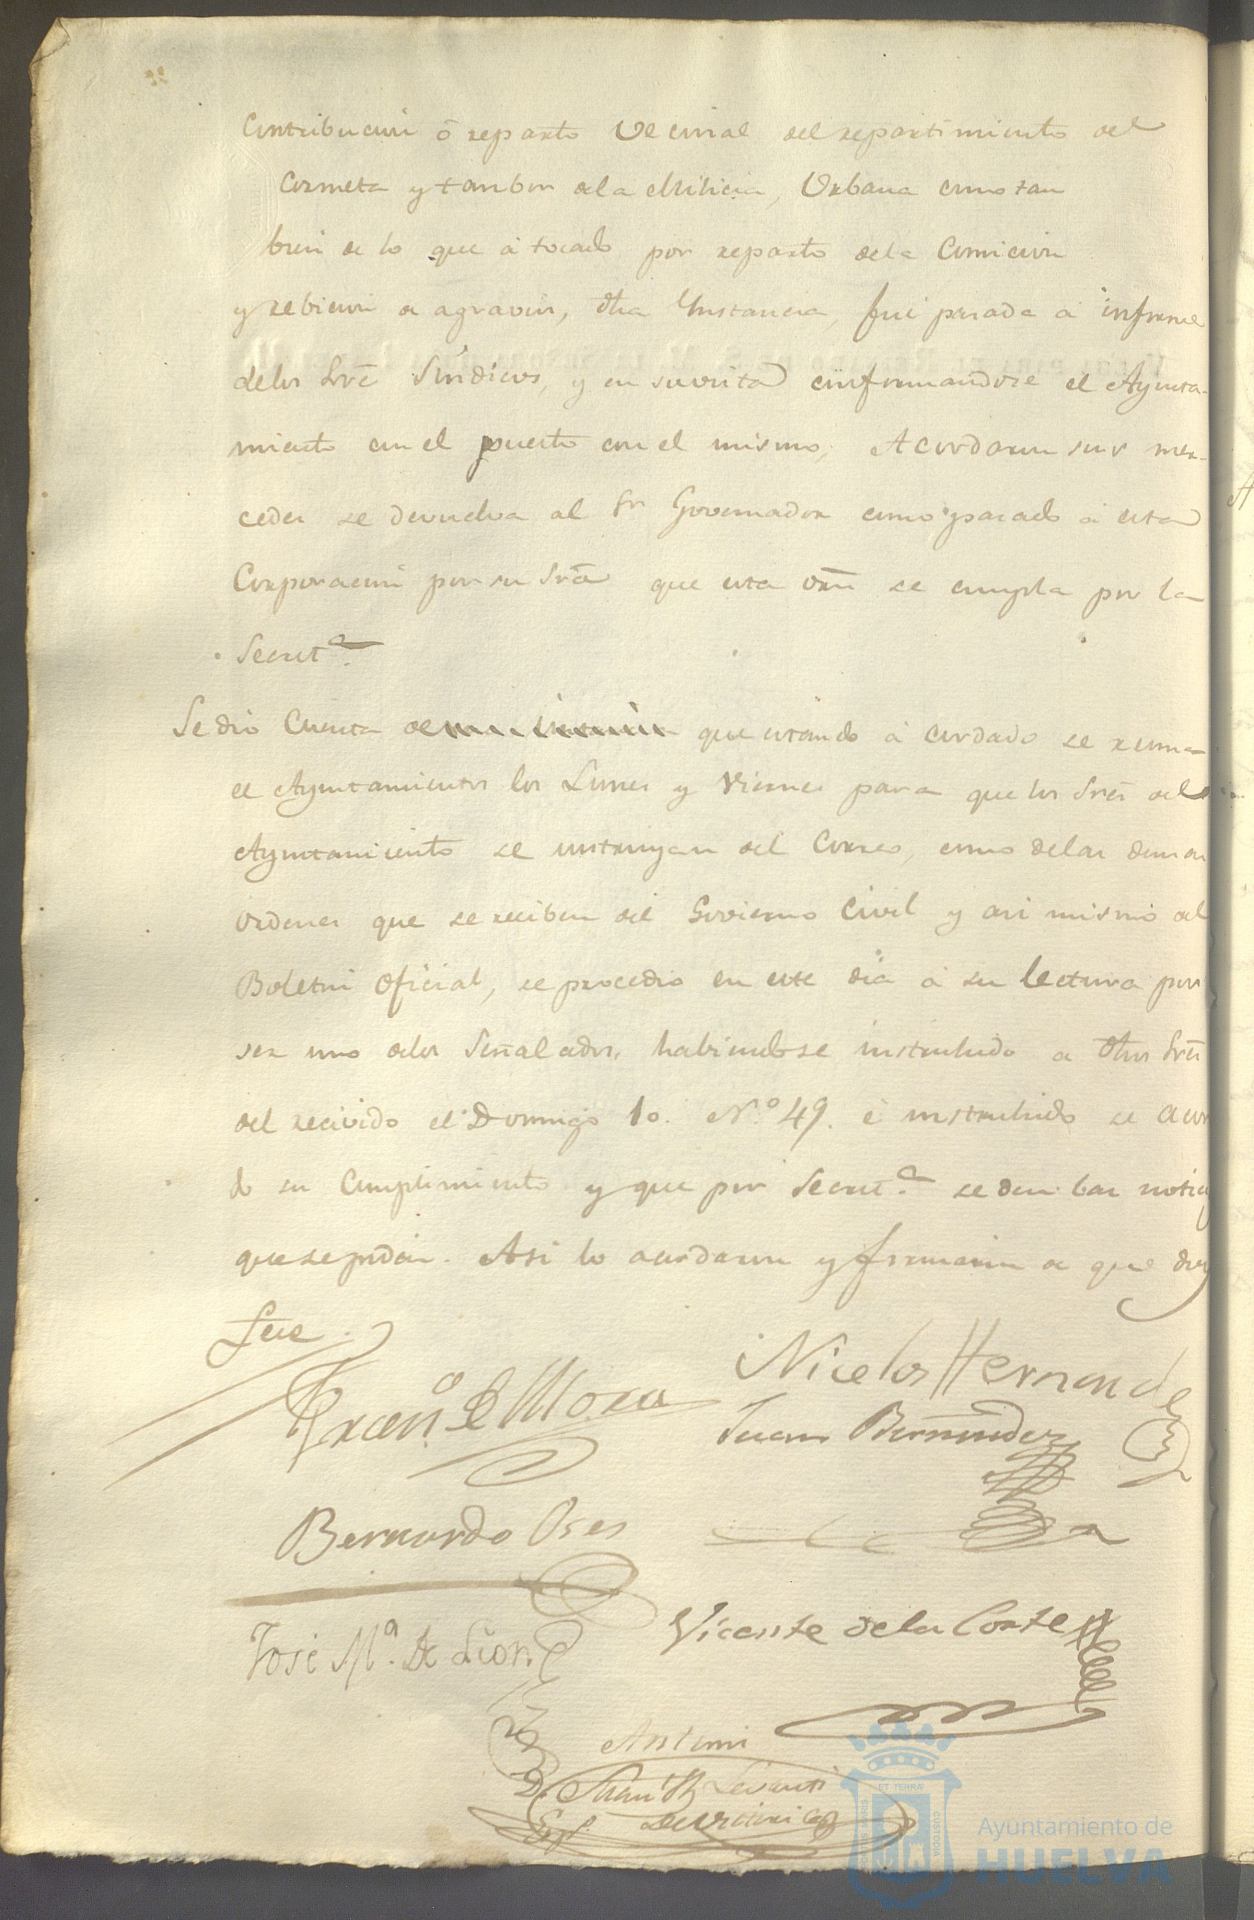 Contribucion ó reparto Vecinal del repartimiento del
Corneta y tambor de la Milicia, Urbana como tan
bien de lo que á tocado por reparto de la Comicion
y rebicion de agravios, dha Ynstancia, fue pasada á informe
delos Sres Sindicos, y en su vista conformandose el Ayunta-
miento con el puesto con el mismo, Acordaron sus mer-
cedes se devuelva al Sr Governador como pasado á esta
Corporacion por su Sria que esta orn se cumpla por la
Secreta.
Se dio Cuenta de que estando á cordado se reuna
el Ayuntamientos los Lunes y Viernes para que los Sres del
Ayuntamiento se instruyan del Correo, como delas demas
ordenes que se reciben del Govierno Civil y asi mismo del
Boletin Oficial, se procedio en este dia á su lectura por
ser uno delos Señalados, habiendose instruhido a dhos Sres
del recivido el Domingo 10. Nº 49. é instruhido se acor
do su Cumplimiento y que por Secreta. se den las notic
que se pidan. Asi lo acordaron y firmaron de que doy
Fee.
Francº de Mora
Nicolos Hernande
Juan Bermudez
Bernardo Oses
José Mª. De Leon
Vicente de la Corte
Antemi
Ayuntamiento de
HUELVA